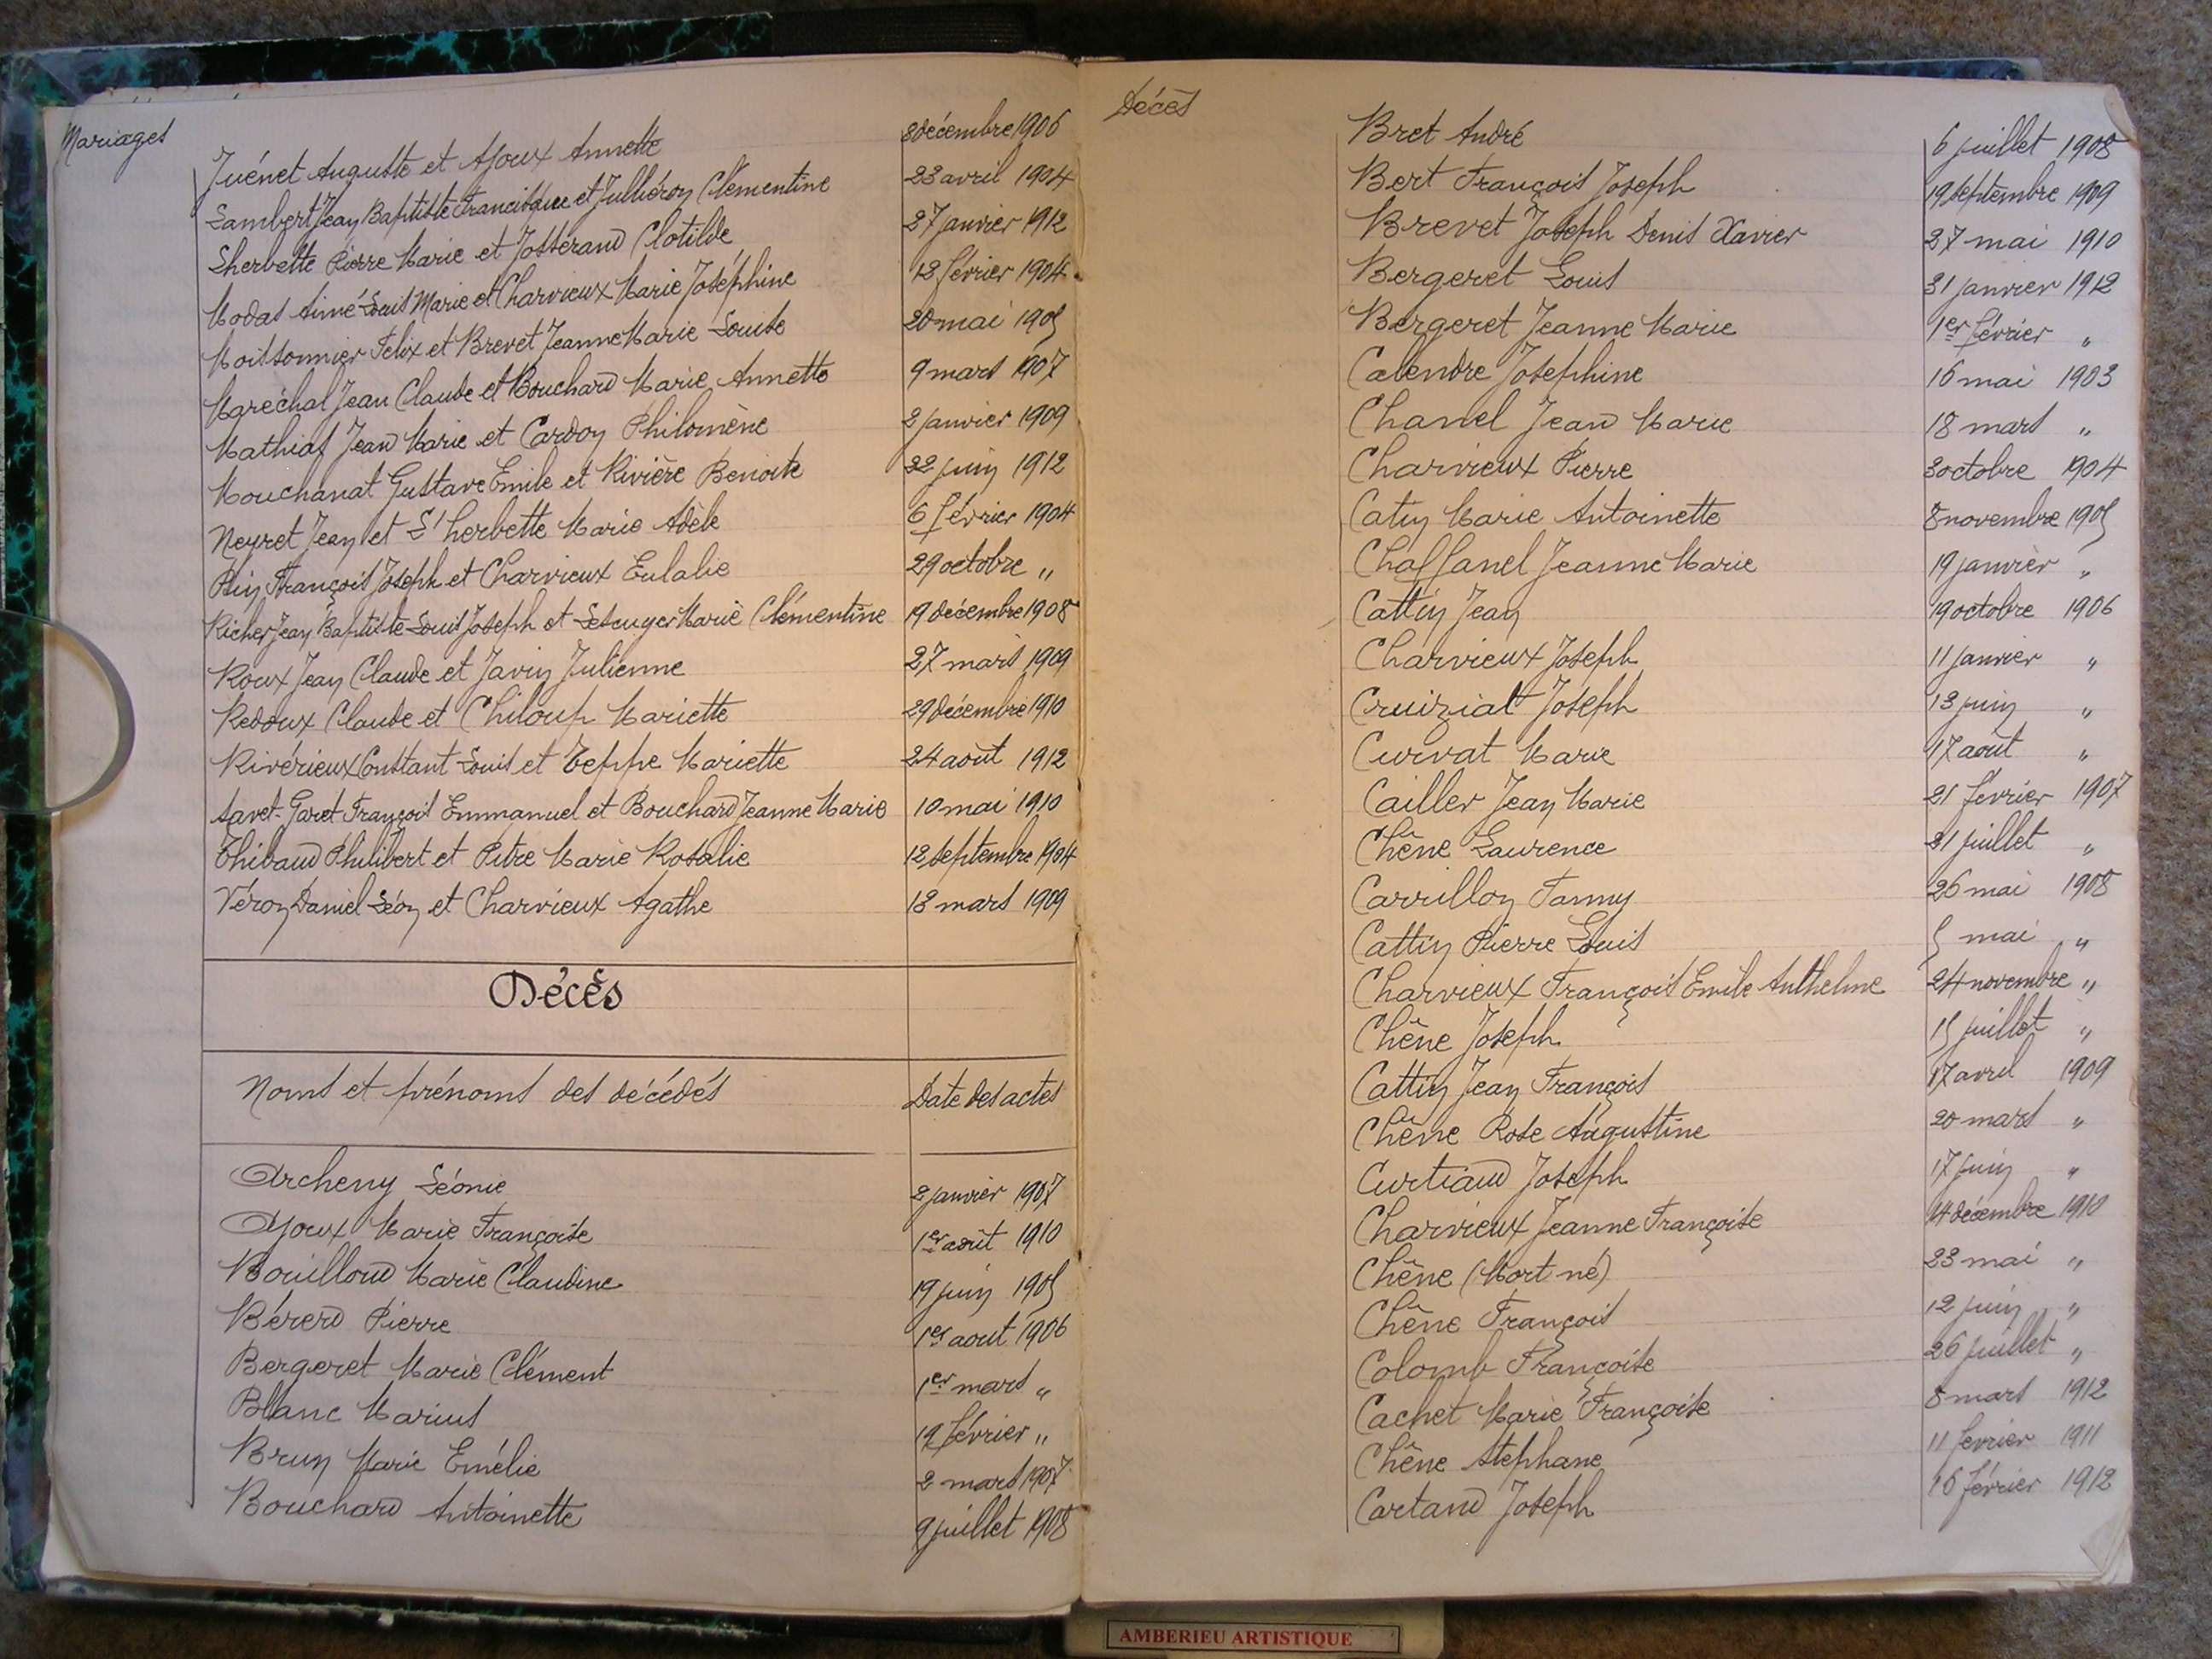 Mariages
Juénet Auguste et Ajoux Annette 8 décembre 1906
Lambert Jean Baptiste Francisque et Julliéron Clémentine 23 avril 1904
Lherbette Pierre Marie et Josserand Clotilde 27 janvier 1912
Modas Aimé Louis Marie et Charvieux Marie Joséphine 13 février 1904
Moissonnier Felix et Brevet Jeanne Marie Louise 20 mai 1905
Maréchal Jean Claude et Bouchard Marie Annette 9 mars 1907
Mathias Jean Marie et Cardon Philomène 2 janvier 1909
Mouchanat Gustave Emile et Rivière Benoite 22 juin 1912
Neyret Jean et L'herbette Marie Adèle 6 février 1904
Pin François Joseph et Charvieux Eulalie 29 octobre "
Richer Jean Baptiste Louis Joseph et Marie Clémentine 19 décembre 1908
Roux Jean Claude et Javin Julienne 27 mars 1909
Redoux Claude et Chiloup Mariette 29 décembre 1910
Rivérieux Constant Louis et Teppe Mariette 24 août 1912
Savet-Garet François Emmanuel et Bouchard Jeanne Marie 10 mai 1910
Thibaud Philibert et Pitre Marie Rosalie 12 septembre 1904
Véron Daniel Léon et Charvieux Agathe 13 mars 1909
Décès
Noms et prénoms des décédés Date des actes
Archeny Léonie 2 janvier 1907
Ajoux Marie Françoise 1er août 1910
Bouilloud Marie Claudine 19 juin 1905
Bérerd Pierre 1er aout 1906
Bergeret Marie Clément 1er mars "
Blanc Marius 19 février "
Brun Marie Emélie 2 mars 1907
Bouchard Antoinette 9 juillet 1908
Décès
Bret André 6 juillet 1908
Bert François Joseph 19 septembre 1909
Brevet Joseph Denis Xavier 27 mai 1910
Bergeret Louis 31 janvier 1912
Bergeret Jeanne Marie 1er février "
Calendre Josephine 16 mai 1903
Chanel Jean Marie 18 mars "
Charvieux Pierre 3 octobre 1904
Catin Marie Antoinette 8 novembre 1905
Chaffanel Jeanne Marie 19 janvier "
Cattin Jean 19 octobre 1906
Charvieux Joseph 11 janvier "
Cruiziat Joseph 13 juin "
Curvat Marie 17 août "
Cailler Jean Marie 21 février 1907
Chêne Laurence 31 juillet "
Carrillon Fanny 26 mai 1908
Cattin Pierre Louis 5 mai "
Charvieux François Emile Anthelme 24 novembre "
Chêne Joseph 15 juillet "
Cattin Jean François 17 avril 1909
Chêne Rose Augustine 20 mars "
Curtiaud Joseph 17 juin "
Charvieux Jeanne Françoise 14 décembre 1910
Chêne (Mort né) 23 mai "
Chêne François 12 juin "
Colomb Françoise 26 juillet "
Cachet Marie Françoise 8 mars 1912
Chêne Stephane 11 fevrier 1911
Cartand Joseph 16 février 1912
AMBERIEU ARTISTIQUE